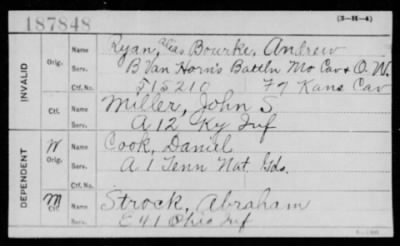 187848
(3-H-4)
INVALID
Orig.
Name Ryan, alias Bourke, Andrew
Serv. B Van Horn's Battln Mo Cav & O. W.
Ctf. No. 515210 F 7 Kans Cav
Ctf. Name Miller, John S
Serv. A 12 Ky Inf
DEPENDENT
W
Orig.
Name Cook, Daniel
Serv. A 1 Tenn Nat. Gds.
Ctf. No.
M
Ctf.
Name Strock, Abraham
Serv. E 41 Ohio Inf